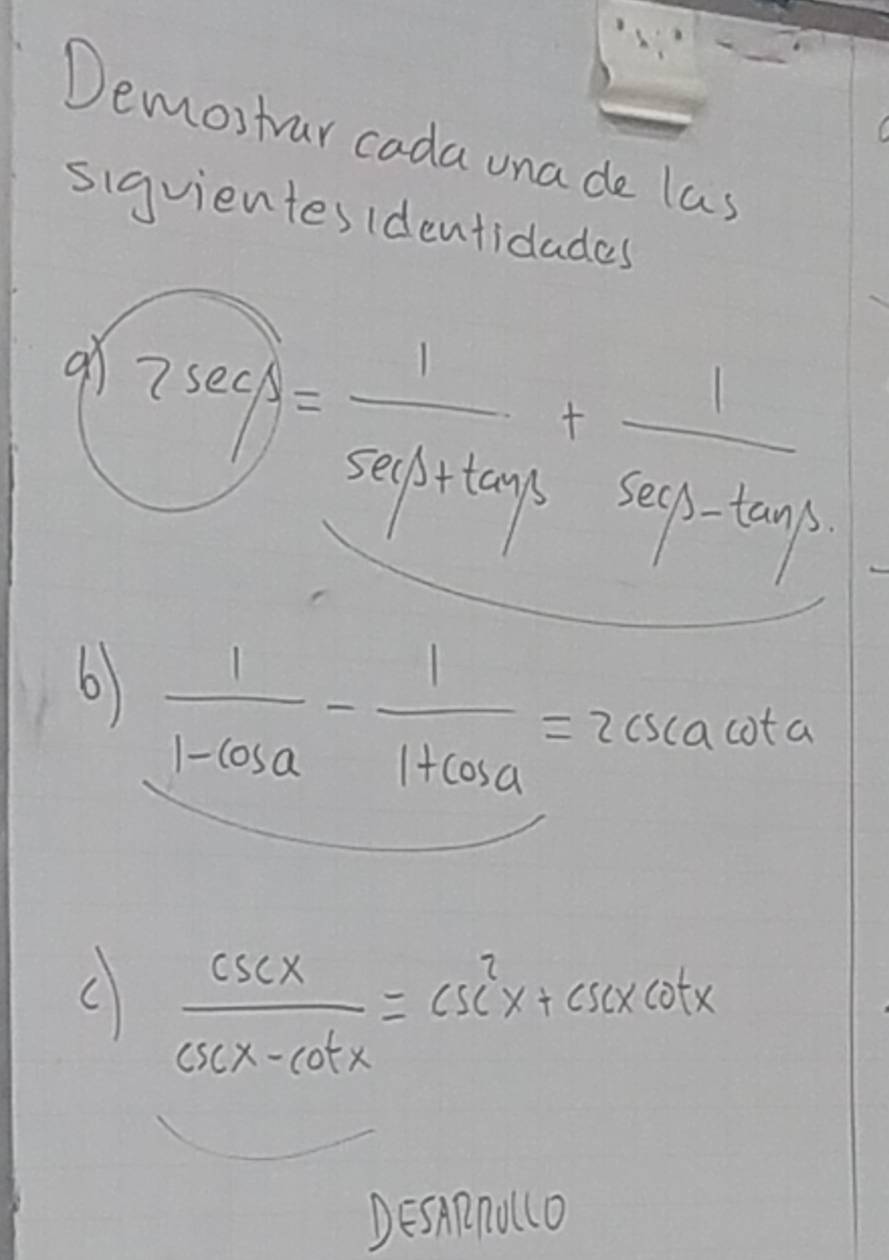 Demostrar cada una de las
siguientes identidades
a) 2 secβ = 1/(secβ + tanβ) + 1/(secβ - tanβ).
b) 1/(1 - cos a) - 1/(1 + cos a) = 2 csc a cot a
c) csc x/(csc x - cot x) = csc²x + csc x cot x
DESARROLLO